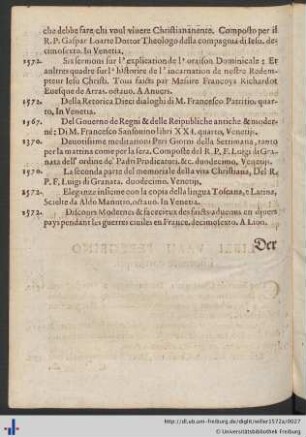 che debbe fare chi vuol viuere Christianamente. Composto per il
R. P. Gaspar Loarte Dottor Theologo della compagnia di Iesu. de-
cimosexto. In Venetia.
1572. Six sermons sur l'explication de l'oraison Dominicale: Et
aultres quatre sur l'histoire de l'incarnation de nostre Redem-
pteur Iesu Christ. Tous faicts par Messire Francoys Richardot
Euesque de Arras. octauo. A Anuers.
1572. Della Retorica Dieci dialoghi di M. Francesco Patritio. quar-
to, In Venetia.
1567. Del Gouerno de Regni & delle Republiche antiche & moder-
ne; Di M. Francesco Sansouino libri XXI. quarto, Venetijs.
1570. Deuotissime meditationi Per i Giorni della Settimana, tanto
per la mattina come per la sera. Composte del R. P. F. Luigi de Gra-
nata dell'ordine de' Padri Predicatori. &c. duodecimo, Venetijs.
1570. La seconda parte del memoriale della vita Christiana, Del R.
P. F. Luigi di Granata. duodecimo. Venetijs,
1572. Eleganze insieme con la copia della lingua Toscana, e Latina,
Scielte da Aldo Manutio, octauo. In Venetia.
1572. Discours Modernes & facecieux des faicts aduenus en diuers
pays pendant les guerres ciuiles en France. decimosexto. A Lion.
Der
http://dl.ub.uni-freiburg.de/diglit/willer1572a/0027
Universitätsbibliothek Freiburg